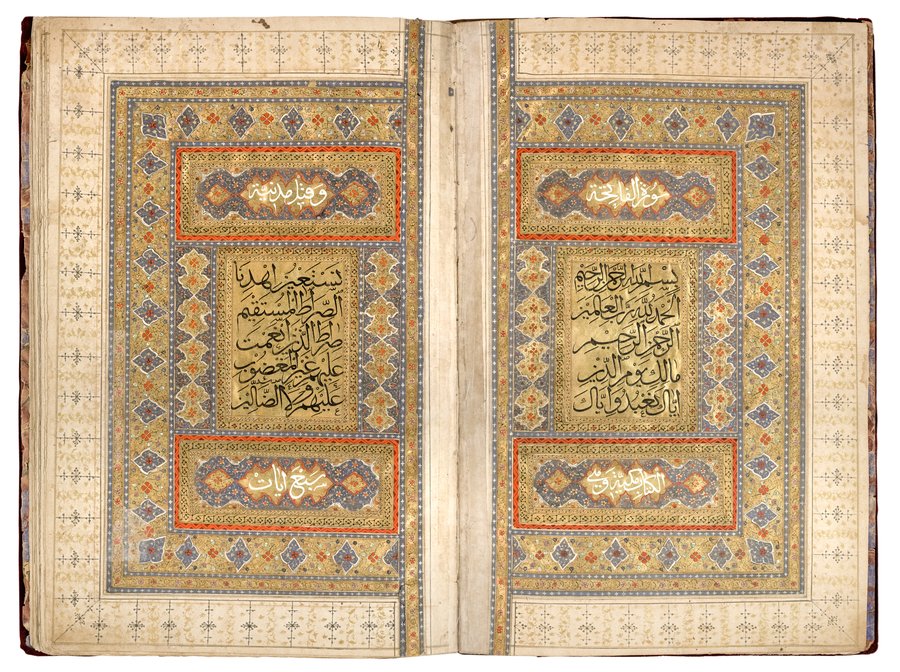 سورة الفاتحة
بسم الله الرحمن الرحيم
الحمد لله رب العالمين
الرحمن الرحيم
مالك يوم الدين
اياك نعبد واياك
الكتاب مكية وهي
وقيل مدنية
نستعين اهدنا
الصراط المستقيم
صراط الذين انعمت
عليهم غير المغضوب
عليهم ولا الضالين
سبع ايات